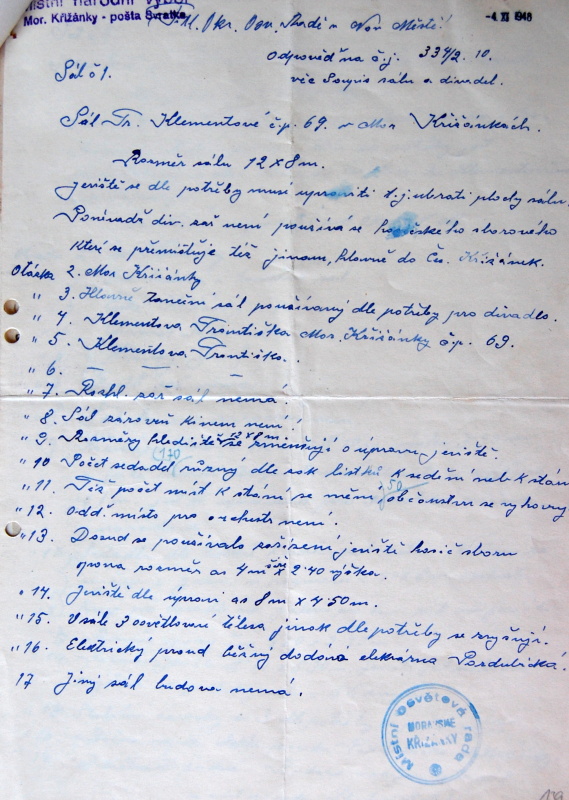 Místní národní výbor
Mor. Křižánky - pošta Svratka
-4. XI 1946
Okr. Osv. Radě v Nov. Městě!
Odpověď na č.j. 334/2. 10.
věc Soupis sálu a divadel.
Sál č 1.
Sál Fr. Klementové č.p. 69. v Mor Křižánkách.
Rozměr sálu 12 x 8 m.
Jeviště se dle potřeby musí upraviti t.j. ubrati plochy sálu.
Poněvadž div. zař. není používá se hasičského sborového
které se přemisťuje též jinam, hlavně do Čes. Křižánek.
Otázka 2. Mor Křižánky
" 3. Hlavně taneční sál používaný dle potřeby pro divadlo.
" 4. Klementova Františka Mor. Křižánky č.p. 69.
" 5. Klementova Františka.
" 6. — — —
" 7. Rozhl. zař sál nemá!
" 8. Sál zároveň kinem není!
" 9. Rozměry hlediště 12 x 8 m se zmenšují o úpravu jeviště.
" 10 Počet sedadel (170) různý dle lístků K sedění neb K stání
" 11. Též počet míst K stání se mění, 50 občanstvu se vyhovuje
" 12. Odd. místo pro orchestr není.
" 13. Dosud se používalo zařízení jeviště hasič sboru
opona rozměr as 4 m šíř x 2·40 výška.
" 14. Jeviště dle úpravi as 8 m x 4·50 m.
" 15. V sále 3 osvětlovací tělesa jinak dle potřeby se zvyšují.
" 16. Elektrický proud běžný dodává elekrárna Pardubická!
17 Jiný sál budova nemá.
Místní osvětová rada
MORAVSKÉ
KŘIŽÁNKY